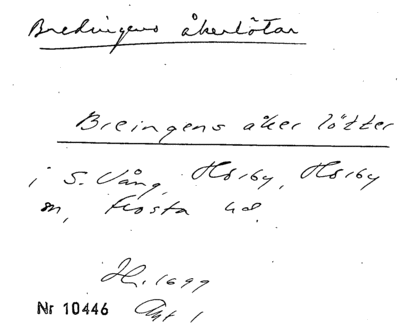 Bredingens åkerlötar
Breingens åker lötter
i S. Vång, Hörby, Hörby
sn, Frosta hd.
H. 1699
Nr 10446 Akt 1